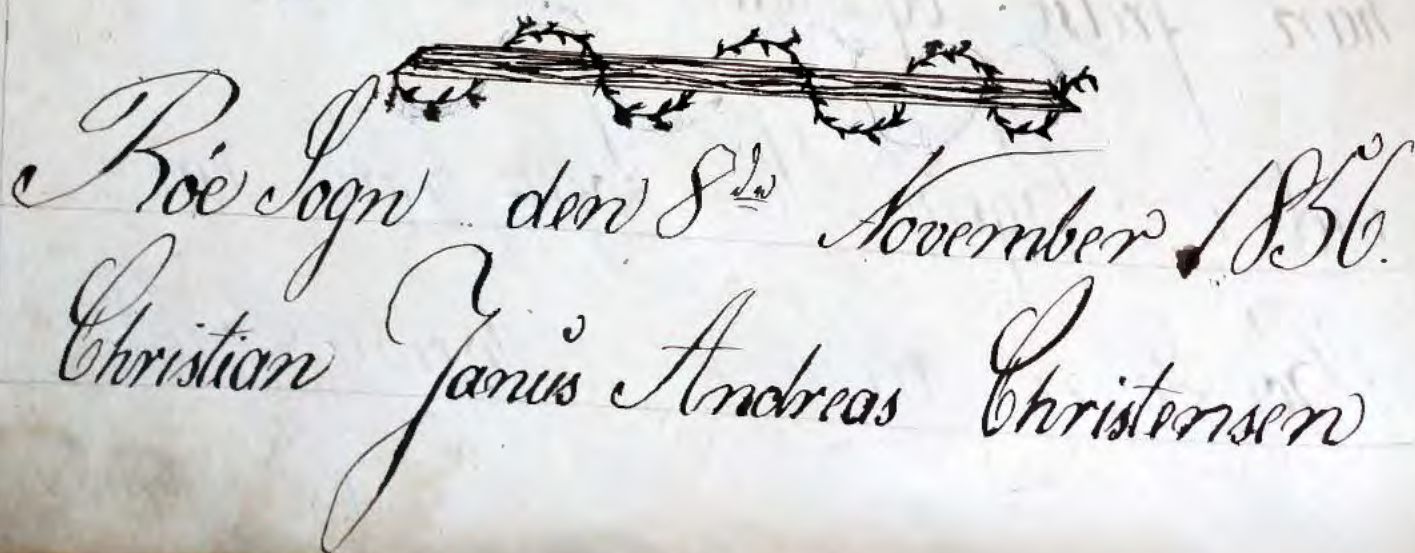 Röe Sogn den 8de November 1856.
Christian Janus Andreas Christensen